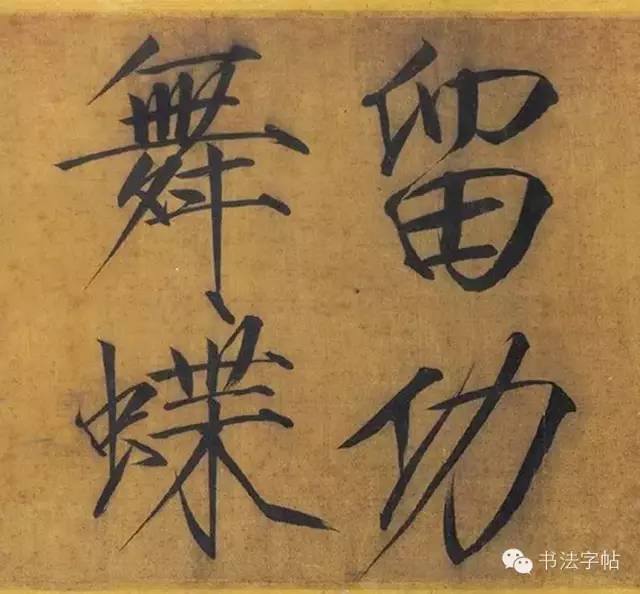 留功
舞蝶
书法字帖